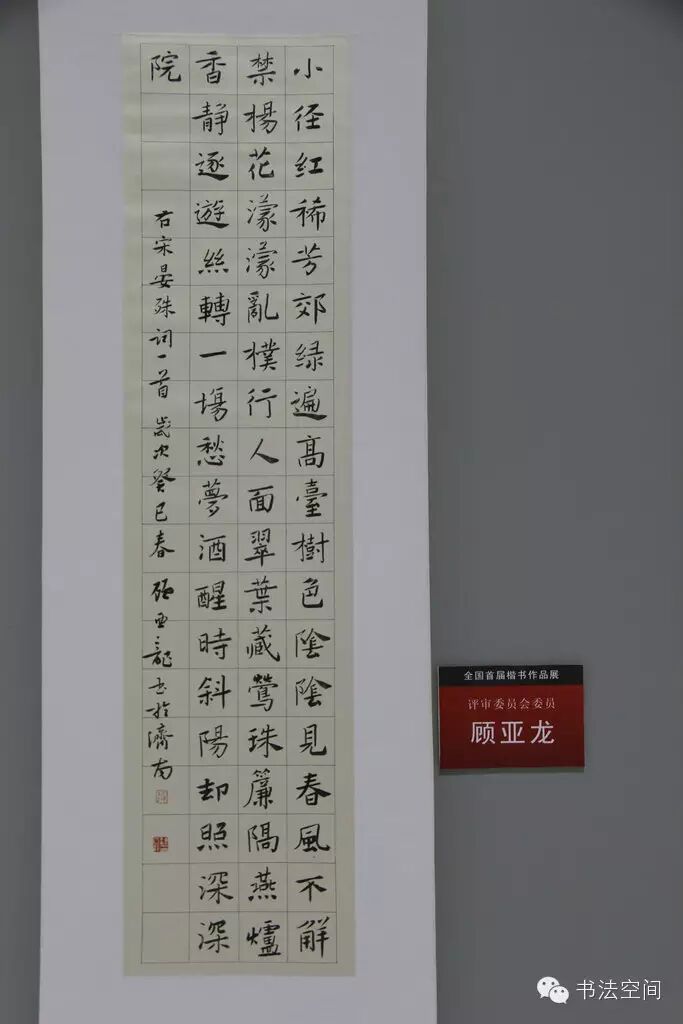 小径红稀芳郊绿遍高臺樹色陰陰見春風不解
禁楊花濛濛亂樸行人面翠葉藏鶯珠簾隔燕爐
香静逐遊絲轉一場愁夢酒醒時斜陽却照深深
院
右宋晏殊词一首 歲次癸巳春 顾亚龍书於濟南
全国首届楷书作品展
评审委员会委员
顾亚龙
书法空间